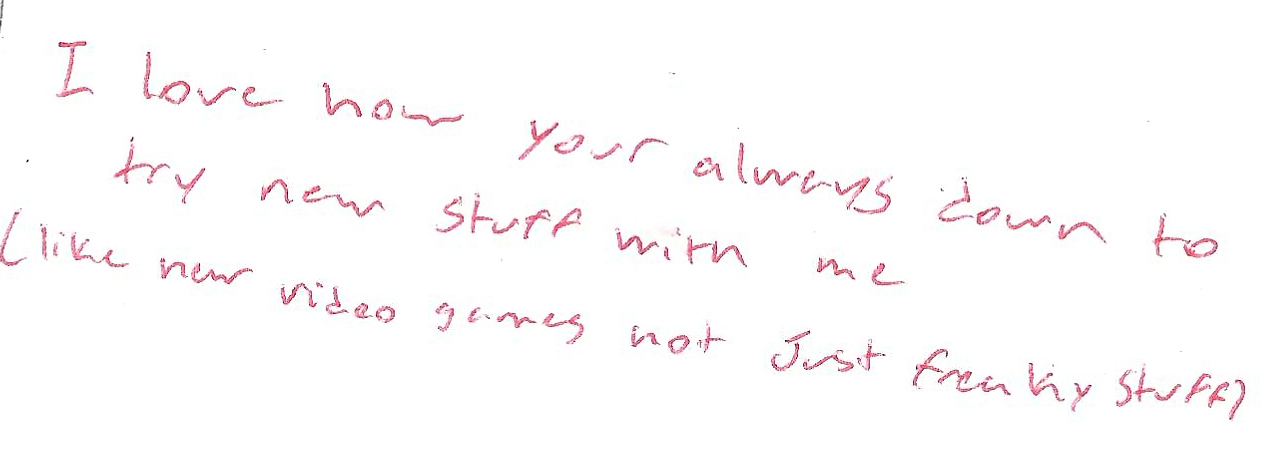 I love how your always down to
try new stuff with me
(like new video games not Just freaky stuff)